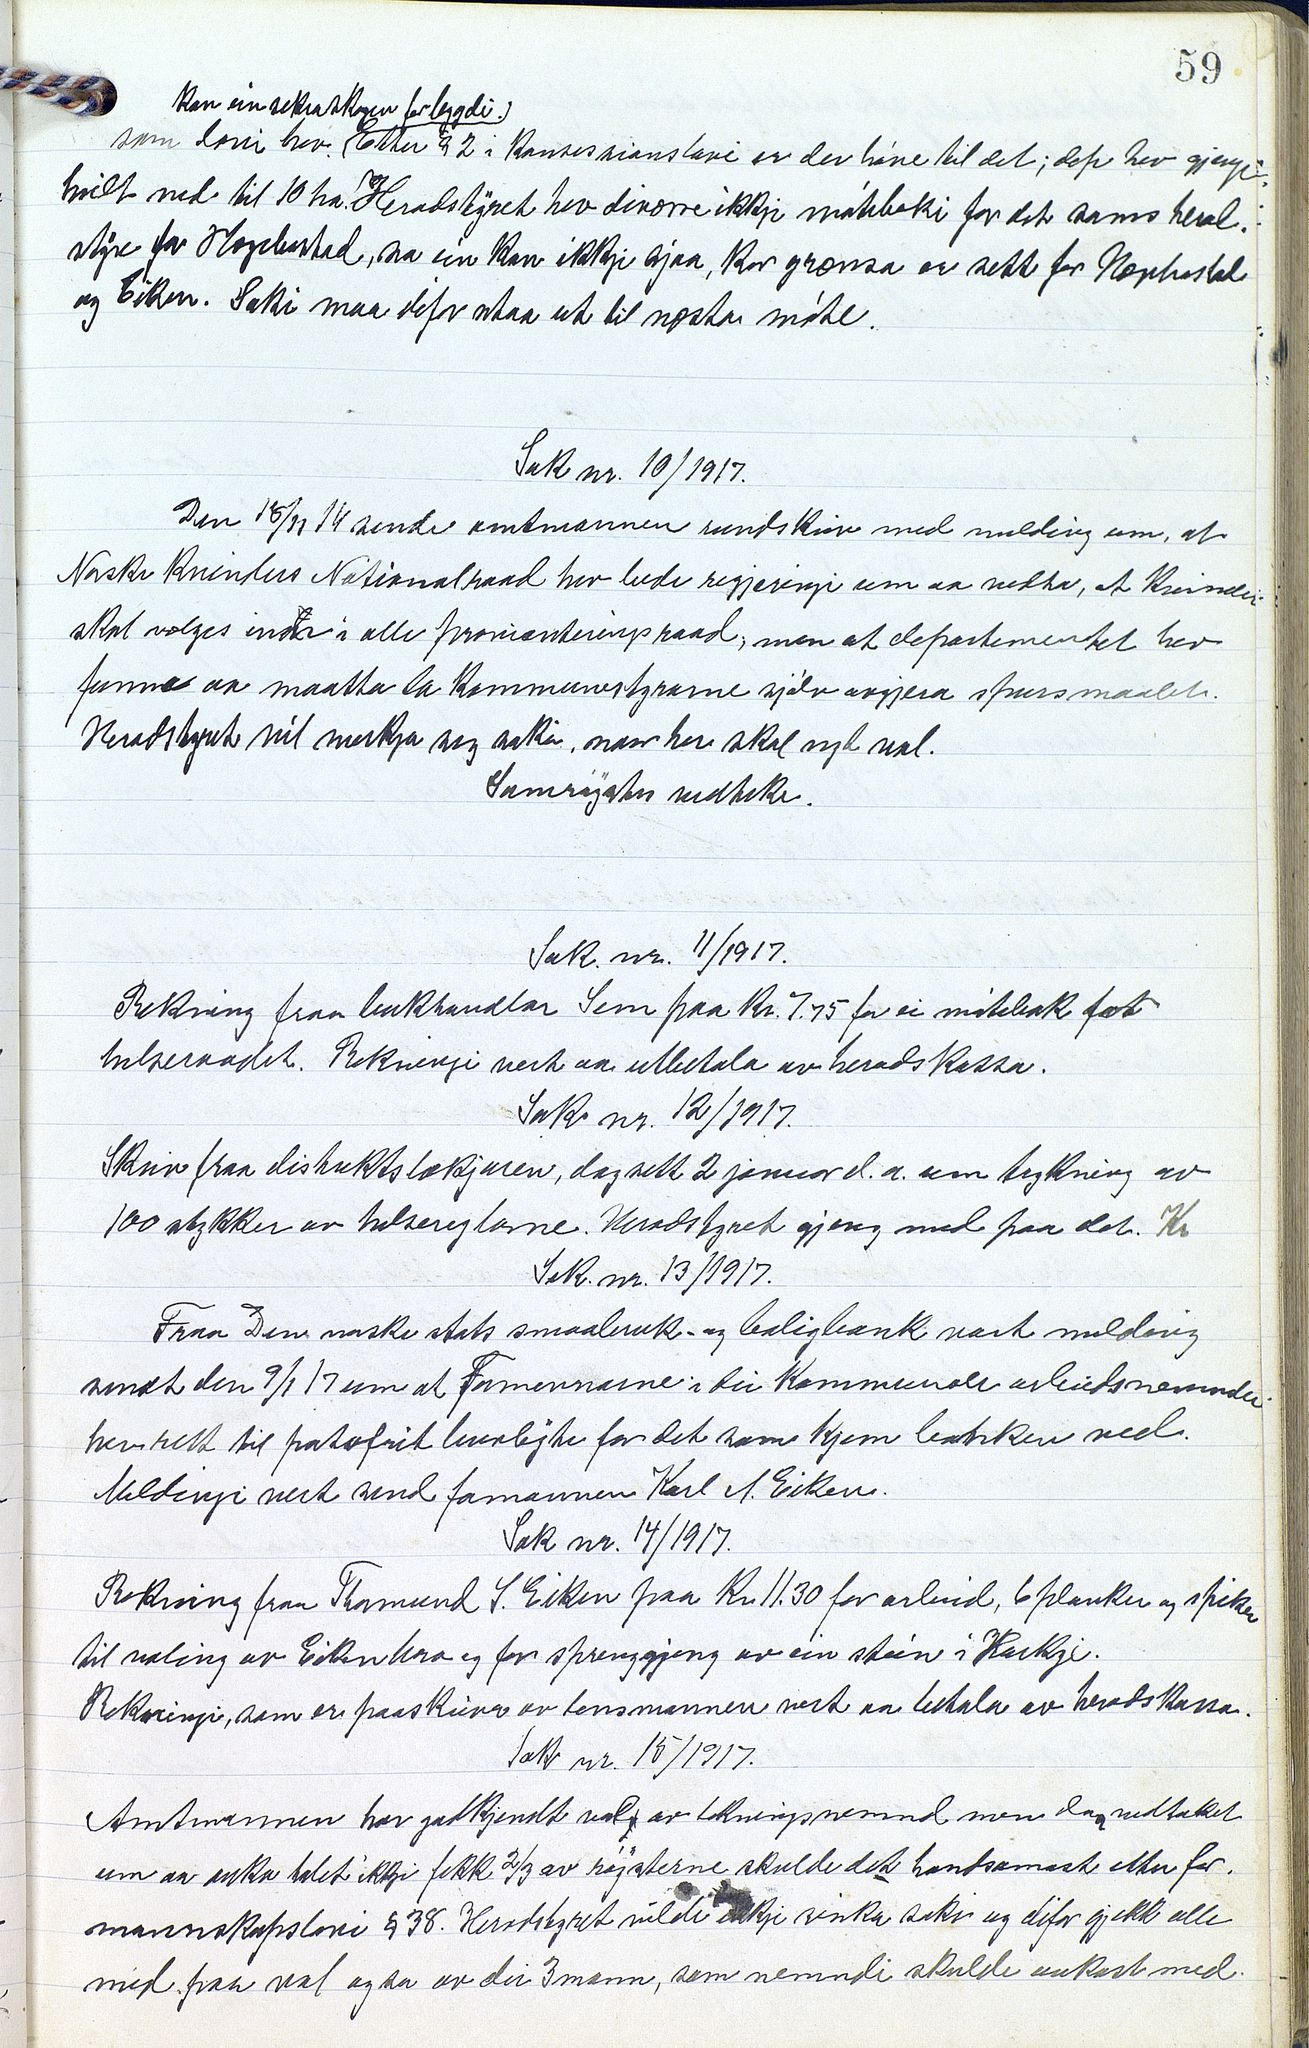 59
kan ein sikra skogen for bygdi.)
som lovi hev. (Etter § 2 i konsesjonslovi er der høve til det; dep. hev gjenge
heilt ned til 10 ha.) Heradstyret hev diverre ikkje møteboki for det sams herad-
styre for Hægebostad, sa ein kan ikkje sjaa, kor grensa er sett for Hægebostad
og Eiken. Saki maa difor staa ut til næste møte.
Sak nr. 10/1917.
Den 18/11 14 sende amtmannen rundskriv med melding um, at
Norske Kvinders Nationalraad hev bede regjeringi um aa vedta, at kvinder
skal vælges ind i alle provianteringsraad, men at departementet hev
funne aa maatta la kommunestyrarne sjølv avgjera spursmaalet.
Heradstyret vil merkja seg saki, naar her skal nyt val.
Samrøystes vedteke.
Sak. nr. 11/1917.
Rekning fraa bukhandlar Sem paa kr. 7.75 for ei møtebok for
helseraadet. Rekningi vert aa utbetala av heradskassa.
Sak nr. 12/1917.
Skriv fraa distriktslækjaren, dagsett 2 januar d. a. um trykning av
100 stykker av helsereglarne. Heradstyret gjeng med paa det. Kr
Sak. nr. 13/1917.
Fraa Den norske stats smaabruk- og boligbank vart melding
sendt den 9/1 17 um at Formennarne i dei kommunale arbeidsnemnder
hev rett til portofrit brevbyte for det som kjem banken ved.
Meldingi vert send formannen Karl A. Eiken.
Sak nr. 14/1917.
Rekning fraa Thormund S. Eiken paa kr. 11.30 for arbeid, 6 planker og spiker
til vøling av Eikenbroa og for sprenggjeng av ein stein i
Rekningi, som er paaskrive av lensmannen vert aa betala av heradskassa.
Sak nr. 15/1917.
Amtmannen har godkjendt val av likningsnemnd men daa vedtaket
um aa auka talet ikkje fekk 2/3 av røysterne skulde det handsamast etter for-
mannskapslovi § 38. Heradstyret vilde ikkje sinka saki og difor gjekk alle
med paa val ogsa av dei 3 mann, som nemndi skulde aukast med.